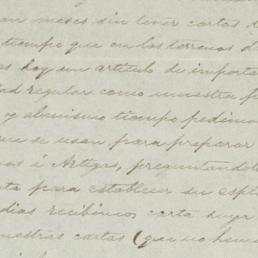 an meses sin tener cartas d
tiempo que en los terrenos d
s hay un artículo de importa
ad regular como nuestra
y al mismo tiempo pedimo
se usan para preparar
os á Artigas, preguntándol
ta para establecer su espl
dias recibimos carta
uestras cartas (que no hemo